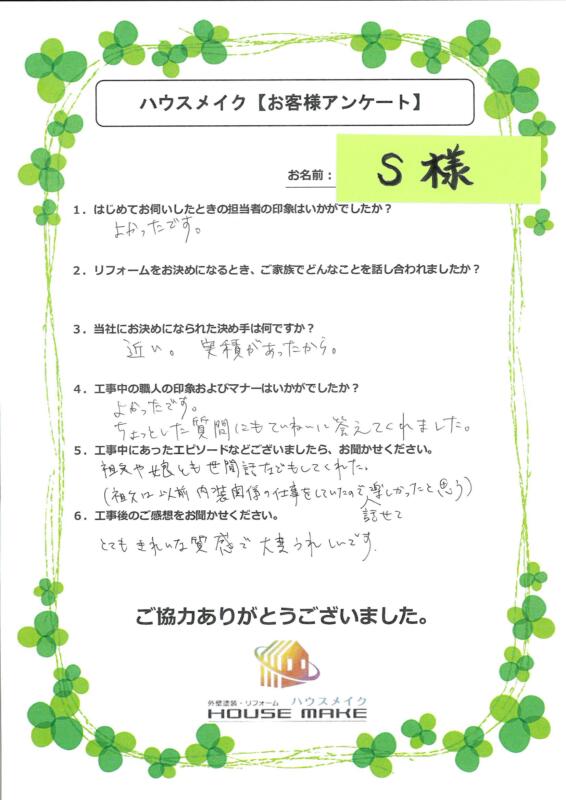 ハウスメイク【お客様アンケート】
お名前： S 様
1．はじめてお伺いしたときの担当者の印象はいかがでしたか？
よかったです。
2．リフォームをお決めになるとき、ご家族でどんなことを話し合われましたか？
3．当社にお決めになられた決め手は何ですか？
近い。 実積があったから。
4．工事中の職人の印象およびマナーはいかがでしたか？
よかったです。
ちょっとした質問にもていねいに答えてくれました。
5．工事中にあったエピソードなどございましたら、お聞かせください。
祖父や娘とも世間話などもしてくれた。
（祖父は以前内装関係の仕事をしていたので楽しかったと思う）
話せて
6．工事後のご感想をお聞かせください。
とてもきれいな質感で大変うれしいです.
ご協力ありがとうございました。
外壁塗装・リフォーム ハウスメイク
HOUSE MAKE